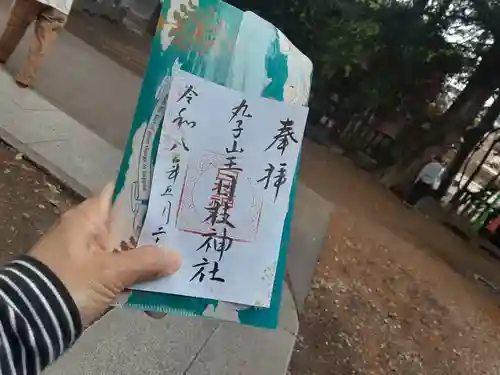 奉拝
丸子山王日枝神社
令和八年五月二